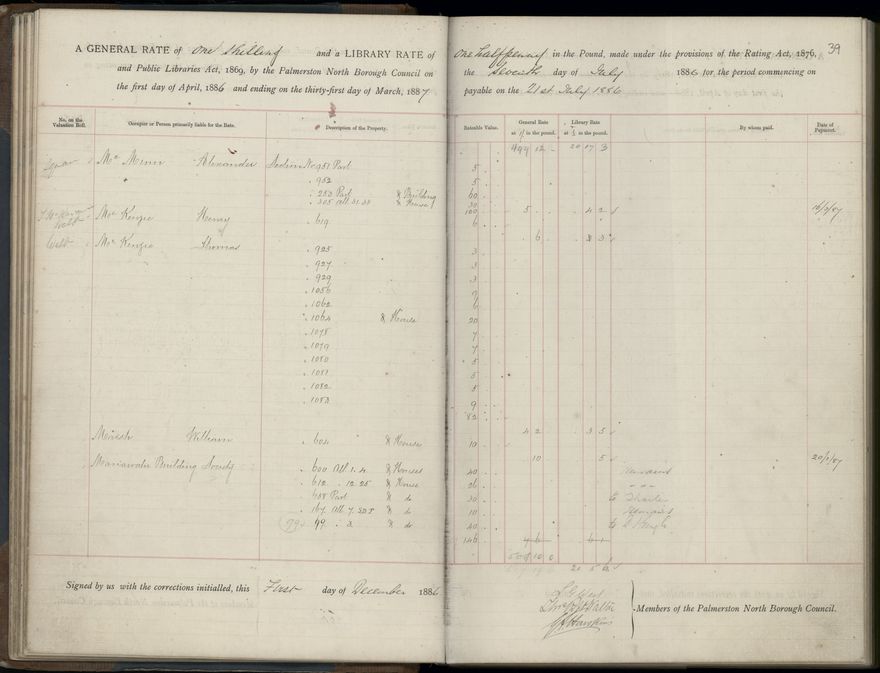 39
A GENERAL RATE of One Shilling and a LIBRARY RATE of One halfpenny in the Pound, made under the provisions of the Rating Act, 1876,
and Public Libraries Act, 1869, by the Palmerston North Borough Council on the Seventh day of July 1886 for the period commencing on
the first day of April, 1886 and ending on the thirty-first day of March, 1887 payable on the 21st July 1886
No. on the Valuation Roll. Occupier or Person primarily liable for the Rate. Description of the Property. Rateable Value. General Rate at 1/ in the pound. Library Rate at ½ in the pound. By whom paid. Date of Payment.
499 12 - 20 17 3
Mc Minn Alexander Section No 951 Part 5
" 952 5
" 253 Part & Building 60
" 305 All 31.33 & House 30
100 5 4 2 16/7/87
Mc Kenzie Henry " 619 6
6 3
Mc Kenzie Thomas " 925 3
" 927 3
" 929 3
" 1056 9
" 1062 6
" 1064 & House 20
" 1078 7
" 1079 7
" 1080 5
" 1081 5
" 1082 5
" 1083 9
82
4 2 3 5
Marsh William " 604 & House 10
10 5 20/1/87
Manawatu Building Society " 600 All 1.4 & Houses 40
" 612 " 12 25 & House 26
" 658 Part & do 30
" 167 All 7 & do 10
" 99 " 3 & do 40
146 7 6 6 1
Signed by us with the corrections initialled, this First day of December 1886
Members of the Palmerston North Borough Council.